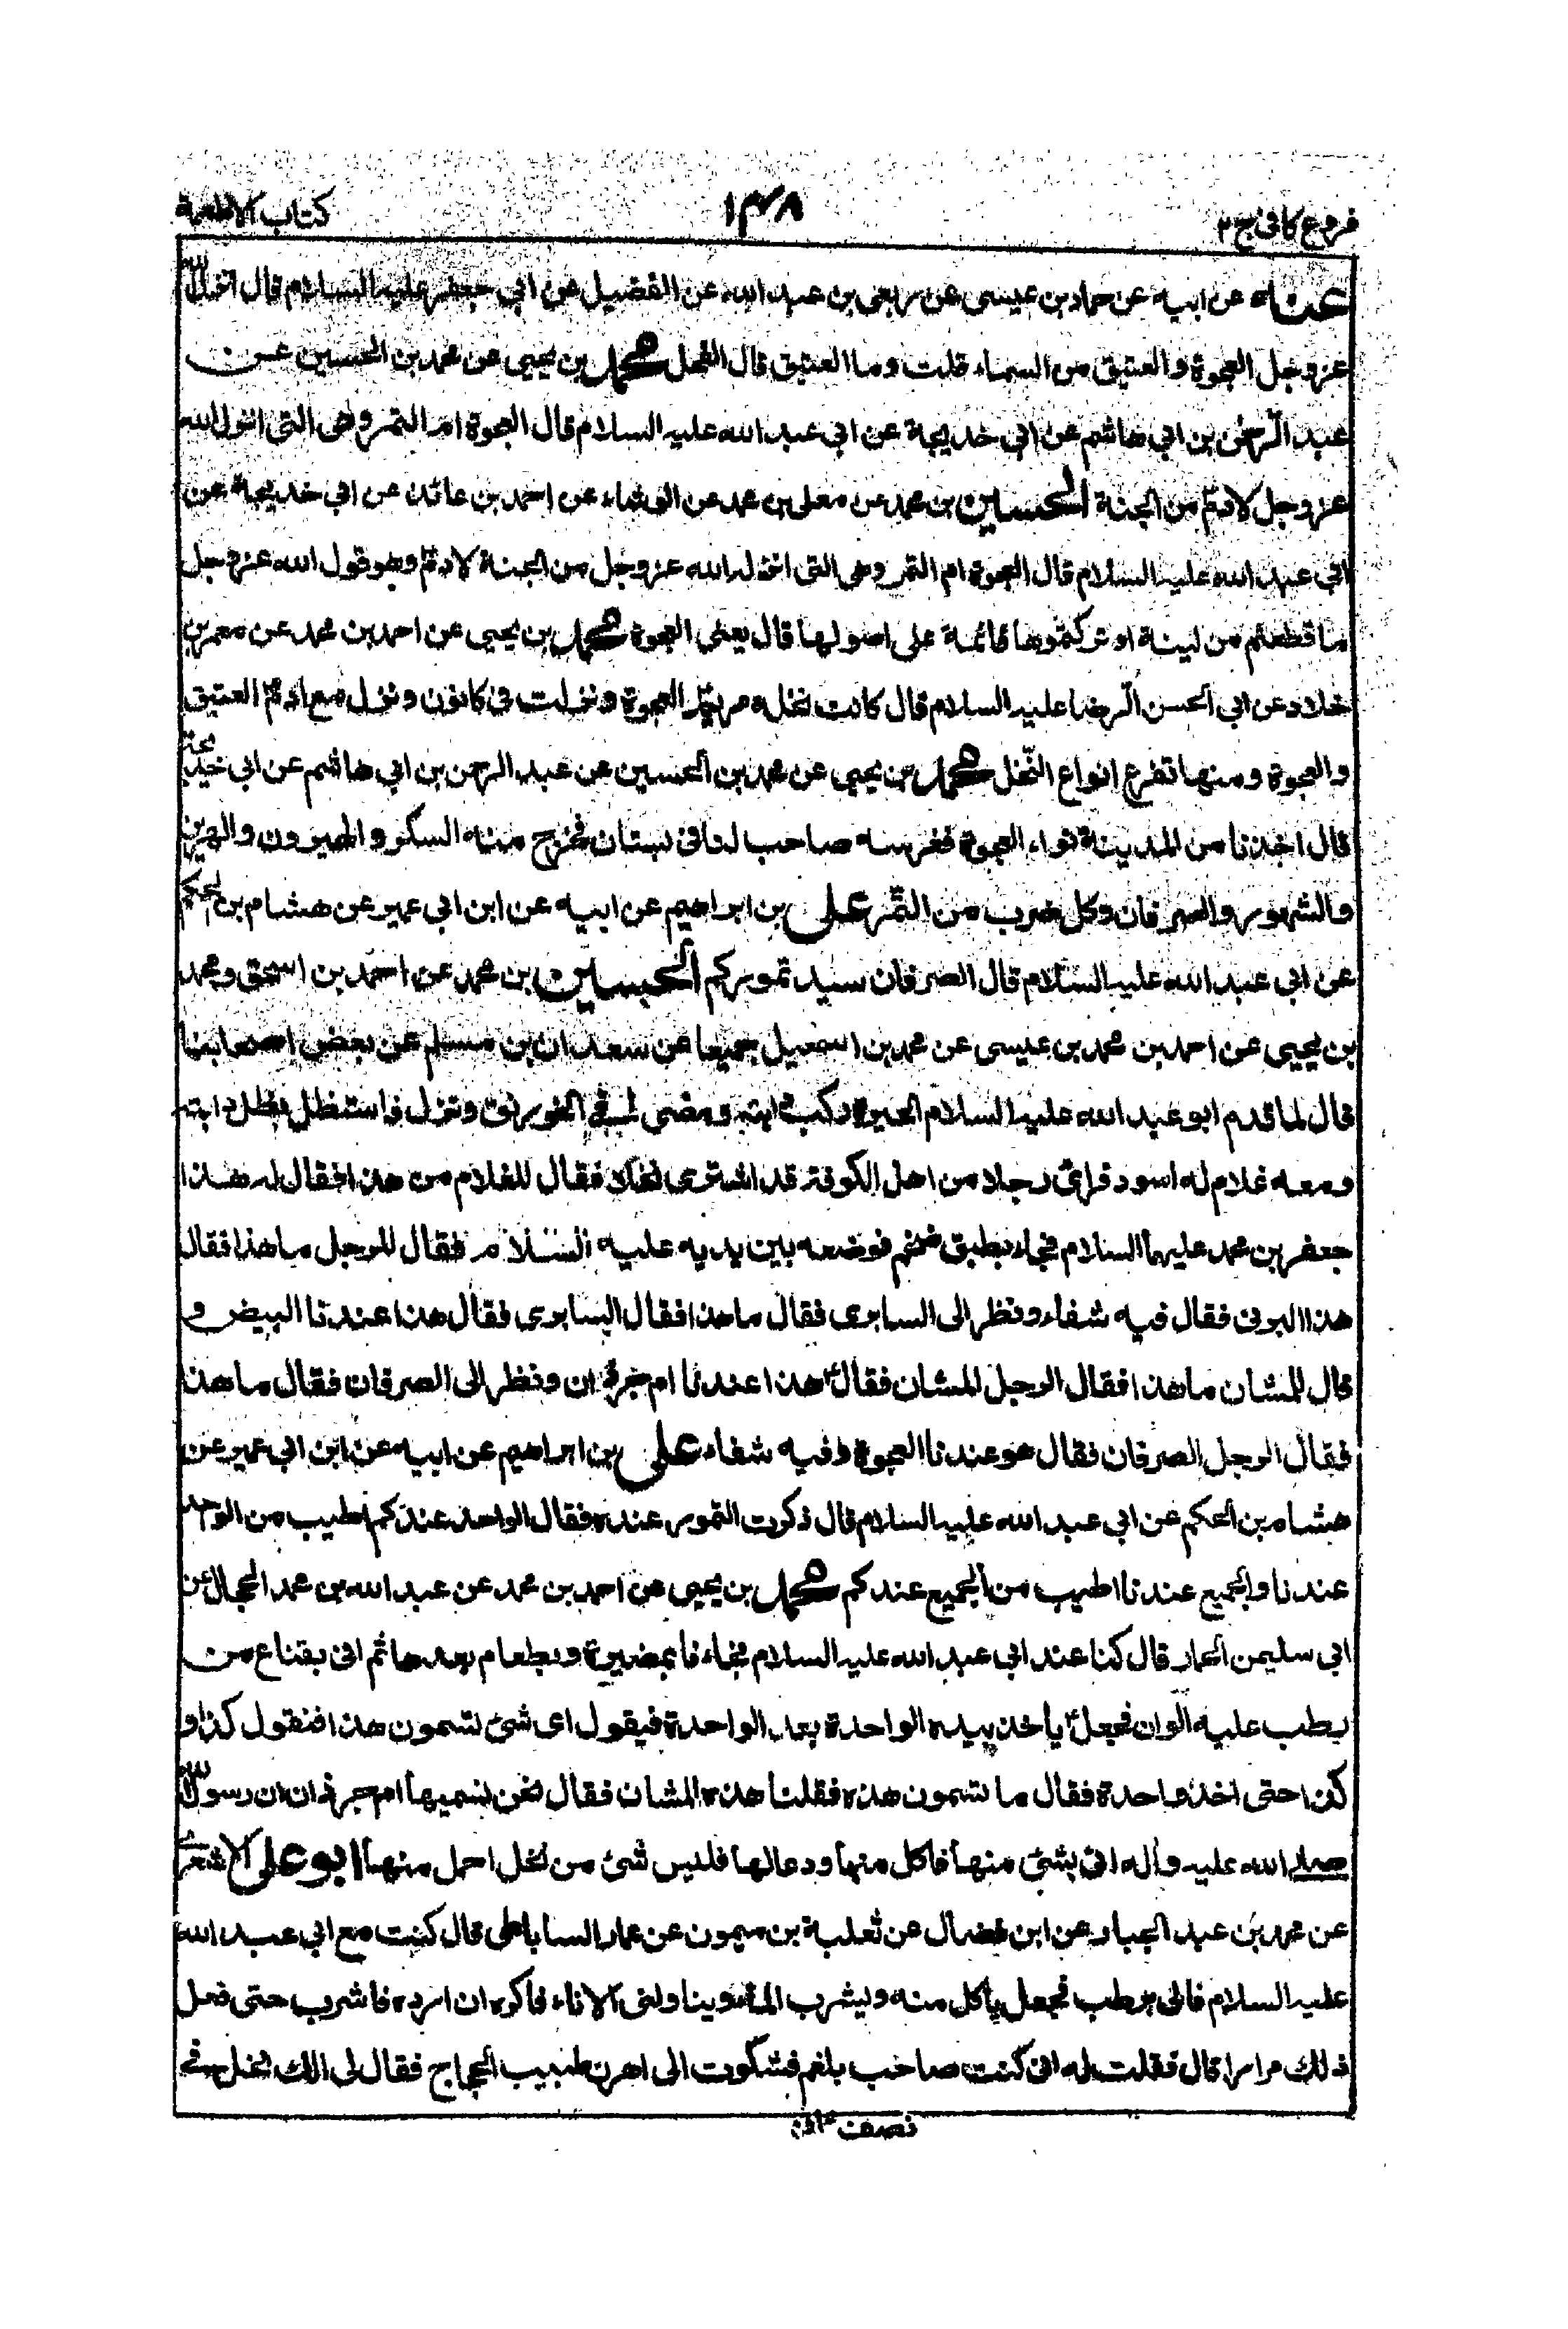 فروع كافى ج٢ ١٤٨ كتاب الاطعمة
عنه عن ابيه عن حماد بن عيسى عن ربعى بن عبد الله عن الفضيل عن ابي جعفر عليه السلام قال انزل الله
عزوجل العجوة والعتيق من السماء قلت وما العتيق قال الفحل محمد بن يحيى عن محمد بن الحسين عن
عبد الرحمن بن ابي هاشم عن ابي خديجة عن ابي عبد الله عليه السلام قال العجوة ام التمر وهى التى انزل الله
عزوجل لادم من الجنة الحسين بن محمد عن معلى بن محمد عن الوشاء عن احمد بن عائذ عن ابي خديجة عن
ابي عبد الله عليه السلام قال العجوة ام التمر وهى التى انزلها الله عزوجل من الجنة لادم وهو قول الله عزوجل
ما قطعتم من لينة او تركتموها قائمة على اصولها قال يعنى العجوة محمد بن يحيى عن احمد بن محمد عن معمر بن
خلاد عن ابي الحسن الرضا عليه السلام قال كانت نخلة مريم العجوة ونزلت فى كانون ونزل مع ادم العتيق
والعجوة ومنها تفرع انواع النخل محمد بن يحيى عن محمد بن الحسين عن عبد الرحمن بن ابي هاشم عن ابي خديجة
قال اخذنا من المدينة نواء العجوة فغرسه صاحب لنا فى بستان فخرج منه السكر والهيرون والهيرين
والشهرير والصرفان وكل ضرب من التمر على بن ابراهيم عن ابيه عن ابن ابي عمير عن هشام بن الحكم
عن ابي عبد الله عليه السلام قال الصرفان سيد تموركم الحسين بن محمد عن احمد بن اسحق ومحمد
بن يحيى عن احمد بن محمد بن عيسى عن محمد بن اسمعيل جميعا عن سعدان بن مسلم عن بعض اصحابنا
قال لما قدم ابو عبد الله عليه السلام الحيرة ركب دابته ومضى الى الخورنق ونزل فاستظل بظل دابته
ومعه غلام له اسود فراى رجلا من اهل الكوفة قد اشترى نخلا فقال للغلام من هذا فقال له هذا
جعفر بن محمد عليهما السلام فجاء بطبق ضخم فوضعه بين يديه عليه السلام فقال للرجل ما هذا فقال
هذا البرنى فقال فيه شفاء ونظر الى السابرى فقال ما هذا فقال السابرى فقال هذا عندنا البيض و
قال للمشان ما هذا فقال الرجل المشان فقال هذا عندنا ام جرذان ونظر الى الصرفان فقال ما هذا
فقال الرجل الصرفان فقال هو عندنا العجوة وفيه شفاء على بن ابراهيم عن ابيه عن ابن ابي عمير عن
هشام بن الحكم عن ابي عبد الله عليه السلام قال ذكرت التمور عنده فقال الواحد عندكم اطيب من الواحد
عندنا والجميع عندنا اطيب من الجميع عندكم محمد بن يحيى عن احمد بن محمد عن عبد الله بن محمد الحجال عن
ابي سليمن الحمار قال كنا عند ابي عبد الله عليه السلام فجاءنا بمضيرة وبطعام بعدها ثم اتى بقناع من
رطب عليه الوان فجعل ياخذ بيده الواحدة بعد الواحدة فيقول اى شئ تسمون هذا فنقول كذا و
كذا حتى اخذ واحدة فقال ما تسمون هذه فقلنا هذه المشان فقال نحن نسميها ام جرذان ان رسول الله
صلى الله عليه واله اتى بشئ منها فاكل منها ودعا لها فليس شئ من نخل احمل منها ابو على الاشعرى
عن محمد بن عبد الجبار عن ابن فضال عن ثعلبة بن ميمون عن عمار الساباطى قال كنت مع ابي عبد الله
عليه السلام فاتى برطب فجعل يأكل منه ويشرب الماء ويناولنى الاناء فاكره ان ارده فاشرب حتى فعل
ذلك مرارا قال فقلت له انى كنت صاحب بلغم فشكوت الى اهرن طبيب الحجاج فقال لى الك نخل فى